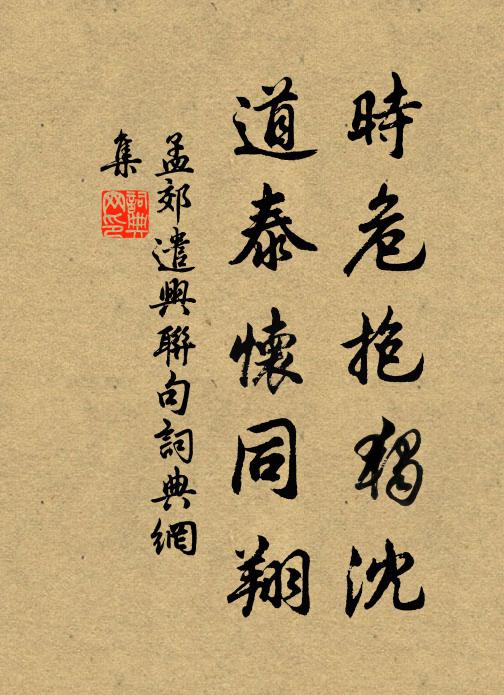 時危抱獨沈
道泰懷同翔
孟郊遣興聯句詞典網
集
詞典
网印